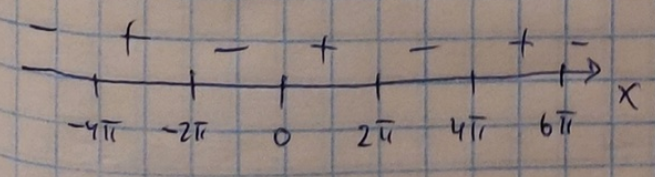 − + − + − + −
−4π −2π 0 2π 4π 6π x